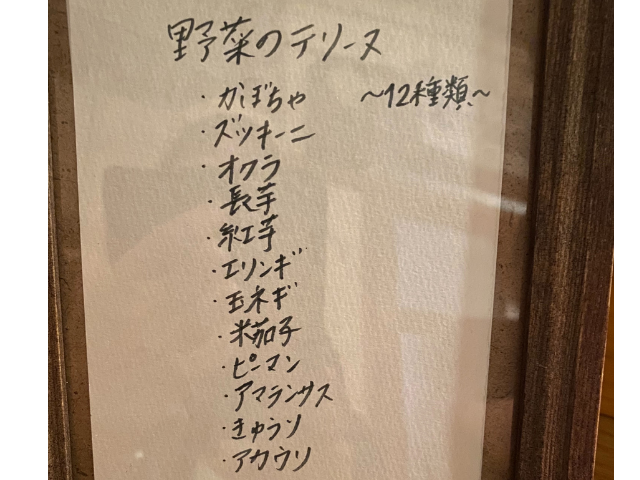 野菜のテリーヌ
~12種類~
・かぼちゃ
・ズッキーニ
・オクラ
・長芋
・紅芋
・エリンギ
・玉ネギ
・米茄子
・ピーマン
・アマランサス
・きゅうり
・アカウリ